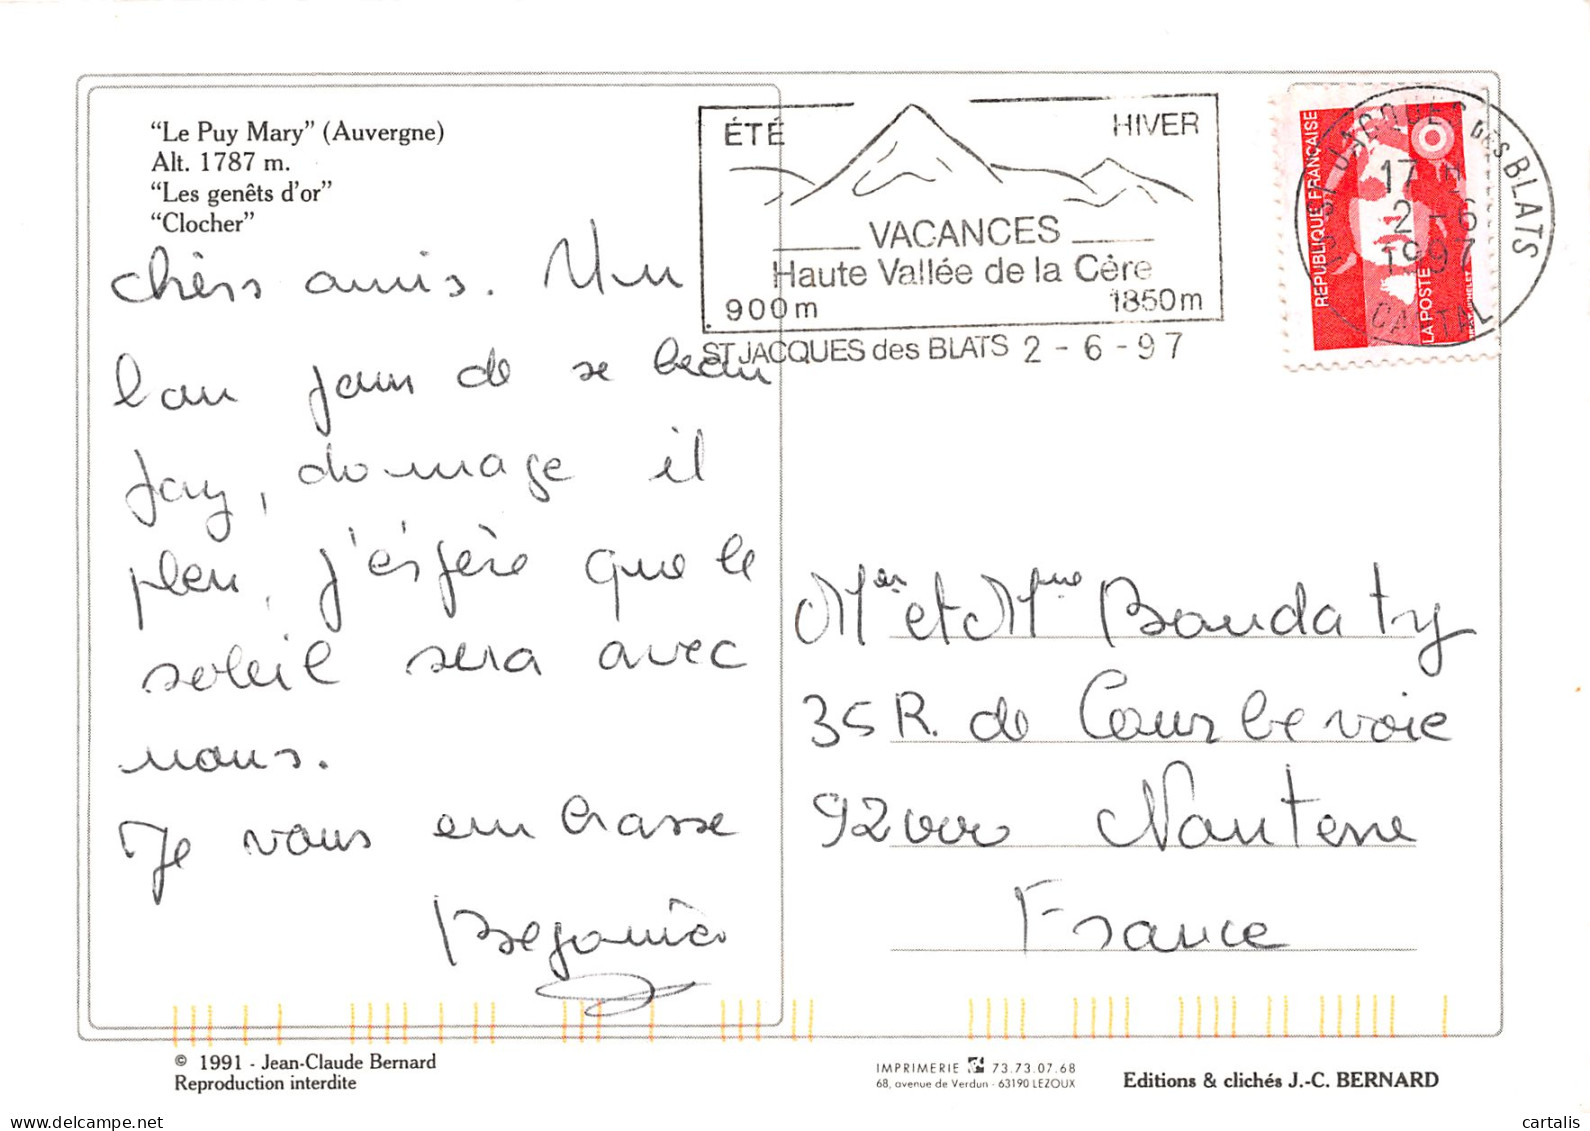 "Le Puy Mary" (Auvergne)
Alt. 1787 m.
"Les genêts d'or"
"Clocher"
chèrs amis. Un
bau jour de se beau
Jay, domage il
pleu, j'éspère que le
soleil sera avec
nous.
Je vous embrasse
Begonia
ÉTÉ HIVER
VACANCES
Haute Vallée de la Cère
900m 1850m
ST JACQUES des BLATS 2 - 6 - 97
RÉPUBLIQUE FRANÇAISE
LA POSTE
ST JACQUES DES BLATS
17 H
2 - 6
1997
CANTAL
Mer et Mme Baudaty
35 R. de Courbevoie
92000 Nanterre
France
© 1991 - Jean-Claude Bernard
Reproduction interdite
IMPRIMERIE 73.73.07.68
68, avenue de Verdun - 63190 LEZOUX
Editions & clichés J.-C. BERNARD
cartalis